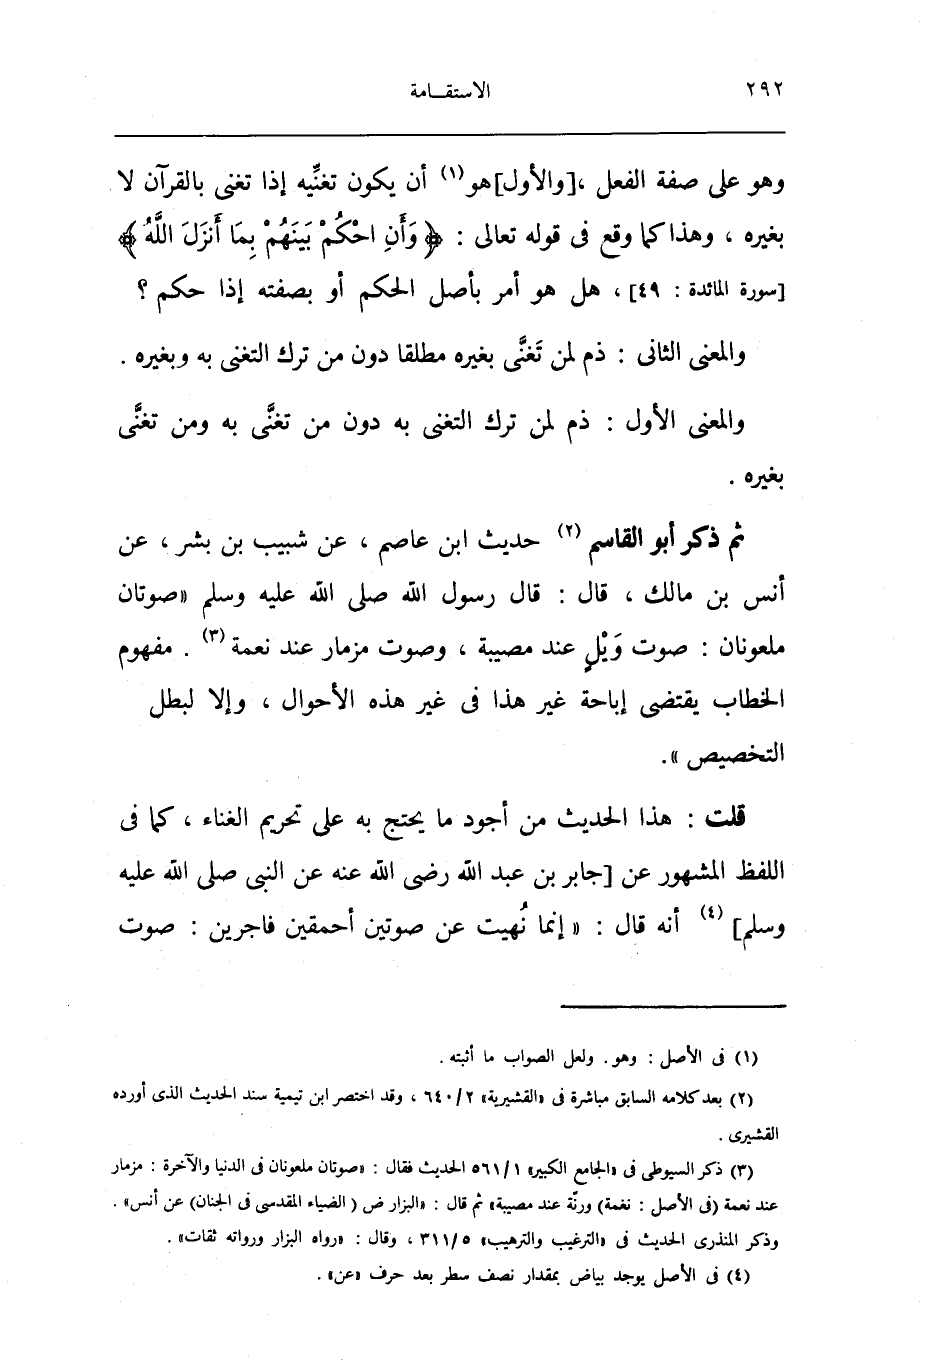 ٢٩٢
الاستقـامة
وهو على صفة الفعل ،[والأول]هو(١) أن يكون تغنِّيه إذا تغنى بالقرآن لا
بغيره ، وهذا كما وقع فى قوله تعالى : ﴿ وَأَنِ احْكُمْ بَيْنَهُمْ بِمَا أَنزَلَ اللَّهُ ﴾
[سورة المائدة : ٤٩] ، هل هو أمر بأصل الحكم أو بصفته إذا حكم ؟
والمعنى الثانى : ذم لمن تَغنَّى بغيره مطلقا دون من ترك التغنى به وبغيره .
والمعنى الأول : ذم لمن ترك التغنى به دون من تغنَّى به ومن تغنَّى
بغيره .
ثم ذكر أبو القاسم (٢) حديث ابن عاصم ، عن شبيب بن بشر ، عن
أنس بن مالك ، قال : قال رسول الله صلى الله عليه وسلم «صوتان
ملعونان : صوت وَيْلٍ عند مصيبة ، وصوت مزمار عند نعمة (٣) . مفهوم
الخطاب يقتضى إباحة غير هذا فى غير هذه الأحوال ، وإلا لبطل
التخصيص ».
قلت : هذا الحديث من أجود ما يحتج به على تحريم الغناء ، كما فى
اللفظ المشهور عن [جابر بن عبد الله رضى الله عنه عن النبى صلى الله عليه
وسلم] (٤) أنه قال : « إنما نُهيت عن صوتين أحمقين فاجرين : صوت
(١) فى الأصل : وهو. ولعل الصواب ما أثبته .
(٢) بعد كلامه السابق مباشرة فى «القشيرية» ٦٤٠/٢ ، وقد اختصر ابن تيمية سند الحديث الذى أورده
القشيرى .
(٣) ذكر السيوطى فى «الجامع الكبير» ٥٦١/١ الحديث فقال : «صوتان ملعونان فى الدنيا والآخرة : مزمار
عند نعمة (فى الأصل : نغمة) ورنّة عند مصيبة» ثم قال : «البزار ض ( الضياء المقدسى فى الجنان) عن أنس» .
وذكر المنذرى الحديث فى «الترغيب والترهيب» ٣١١/٥ ، وقال : «رواه البزار ورواته ثقات» .
(٤) فى الأصل يوجد بياض بمقدار نصف سطر بعد حرف «عن» .